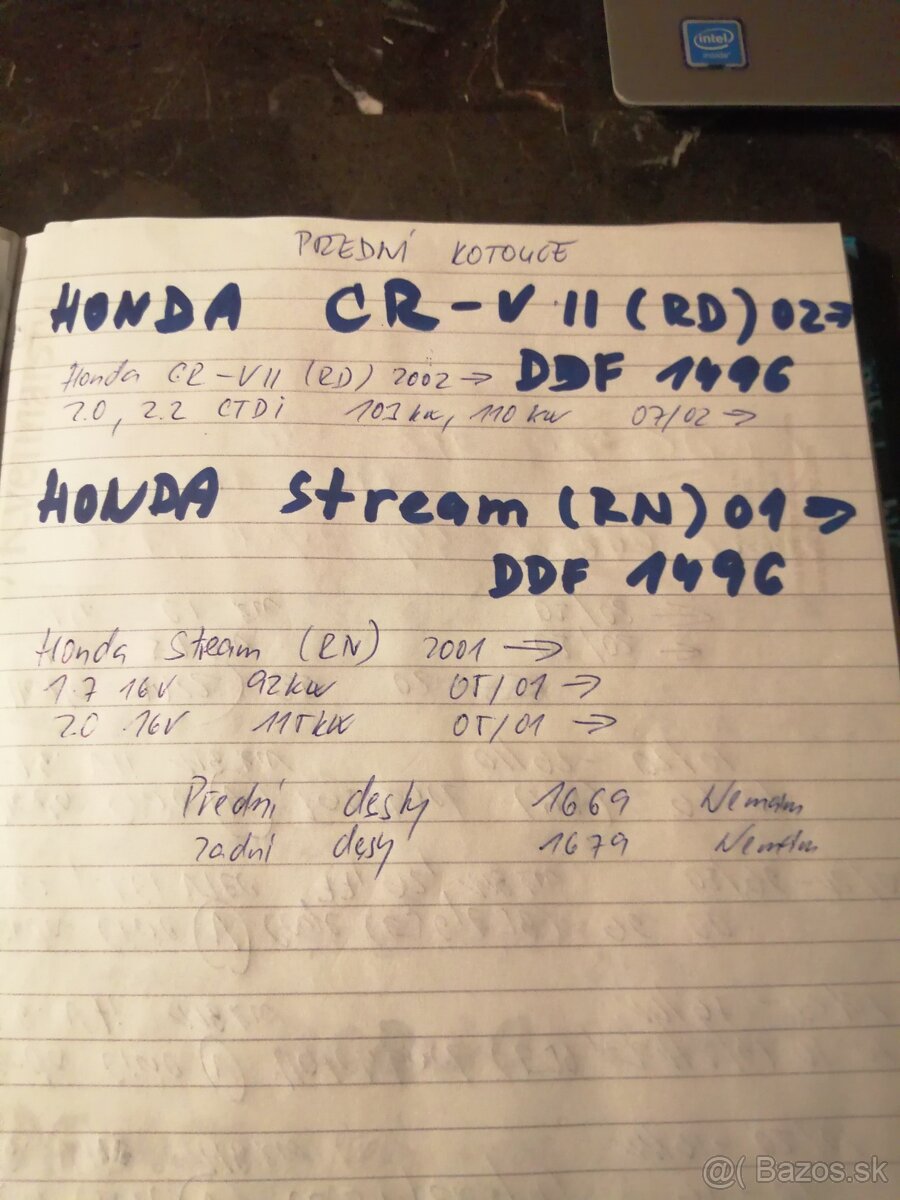 intel
inside
PŘEDNÍ KOTOUČE
HONDA CR-V II (RD) 02→
Honda CR-V II (RD) 2002 → DDF 1496
2.0, 2.2 CTDi 103 kw, 110 kw 07/02 →
HONDA Stream (RN) 01→
DDF 1496
Honda Stream (RN) 2001 →
1.7 16V 92kw 05/01 →
2.0 16V 115kw 05/01 →
Přední desky 1669 Nemám
zadní desy 1679 Nemám
@( Bazos.sk